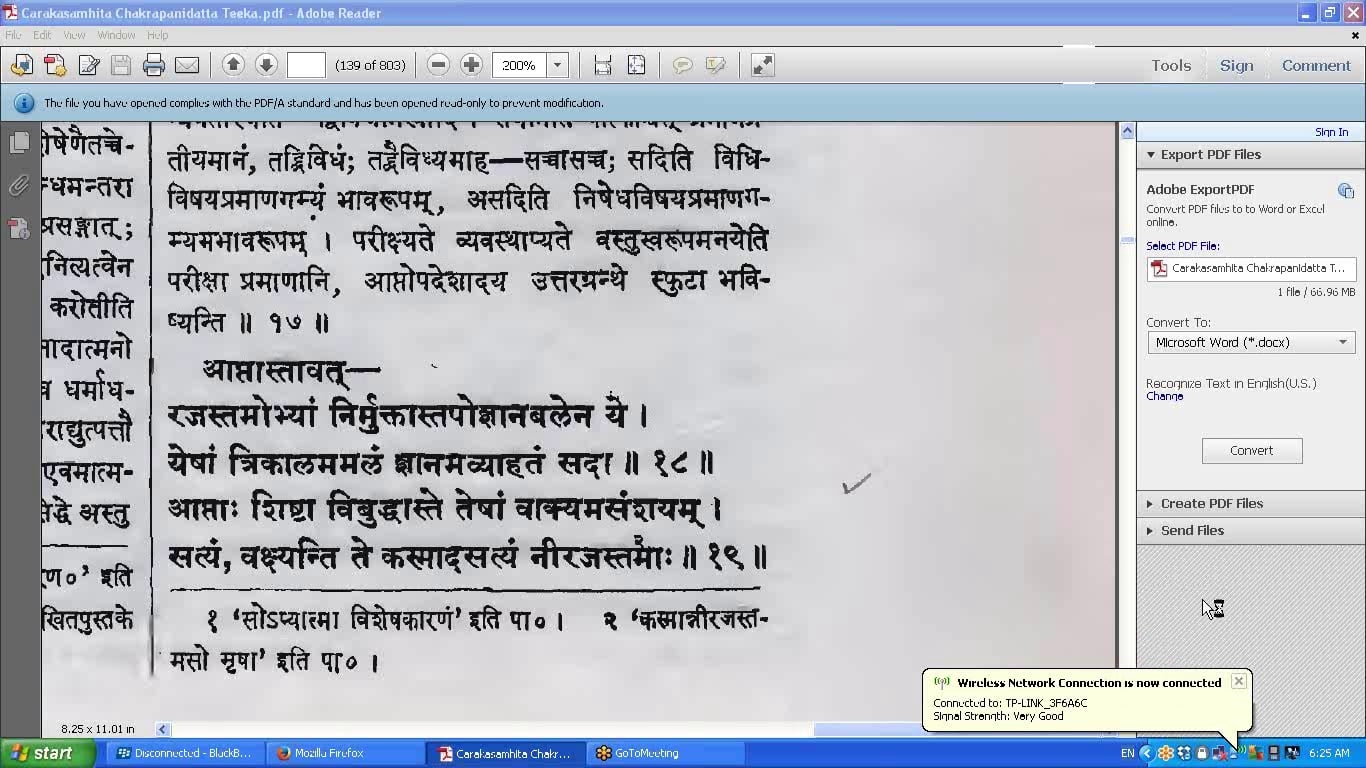 Carakasamhita Chakrapanidatta Teeka.pdf - Adobe Reader
File Edit View Window Help
(139 of 803)
200%
Tools Sign Comment
The file you have opened complies with the PDF/A standard and has been opened read-only to prevent modification.
तीयमानं, तद्द्विविधं; तद्द्वैविध्यमाह—सच्चासच्च; सदिति विधि-
विषयप्रमाणगम्यं भावरूपम्, असदिति निषेधविषयप्रमाणग-
म्यमभावरूपम् । परीक्ष्यते व्यवस्थाप्यते वस्तुस्वरूपमनयेति
परीक्षा प्रमाणानि, आप्तोपदेशादय उत्तरग्रन्थे स्फुटा भवि-
ष्यन्ति ॥ १७ ॥
आप्तास्तावत्—
रजस्तमोभ्यां निर्मुक्तास्तपोज्ञानबलेन ये ।
येषां त्रिकालममलं ज्ञानमव्याहतं सदा ॥ १८ ॥
आप्ताः शिष्टा विबुद्धास्ते तेषां वाक्यमसंशयम् ।
सत्यं, वक्ष्यन्ति ते कस्मादसत्यं नीरजस्तमाः ॥ १९ ॥
१ 'सोऽप्यात्मा विशेषकारणं' इति पा० । २ 'कस्मान्नीरजस्त-
मसो मृषा' इति पा० ।
न्धमन्तरा
प्रसङ्गात्;
नित्यत्वेन
करोतीति
मादात्मनो
धर्माध-
राद्युत्पत्तौ
एवमात्म-
सिद्धे अस्तु
इति
खितपुस्तके
8.25 x 11.01 in
Sign In
Export PDF Files
Adobe ExportPDF
Convert PDF files to to Word or Excel
online.
Select PDF File:
Carakasamhita Chakrapanidatta T...
1 file / 66.96 MB
Convert To:
Microsoft Word (*.docx)
Recognize Text in English(U.S.)
Change
Convert
Create PDF Files
Send Files
Wireless Network Connection is now connected
Connected to: TP-LINK_3F6A6C
Signal Strength: Very Good
start
Disconnected - BlackB...
Mozilla Firefox
Carakasamhita Chakr...
GoToMeeting
EN
6:25 AM